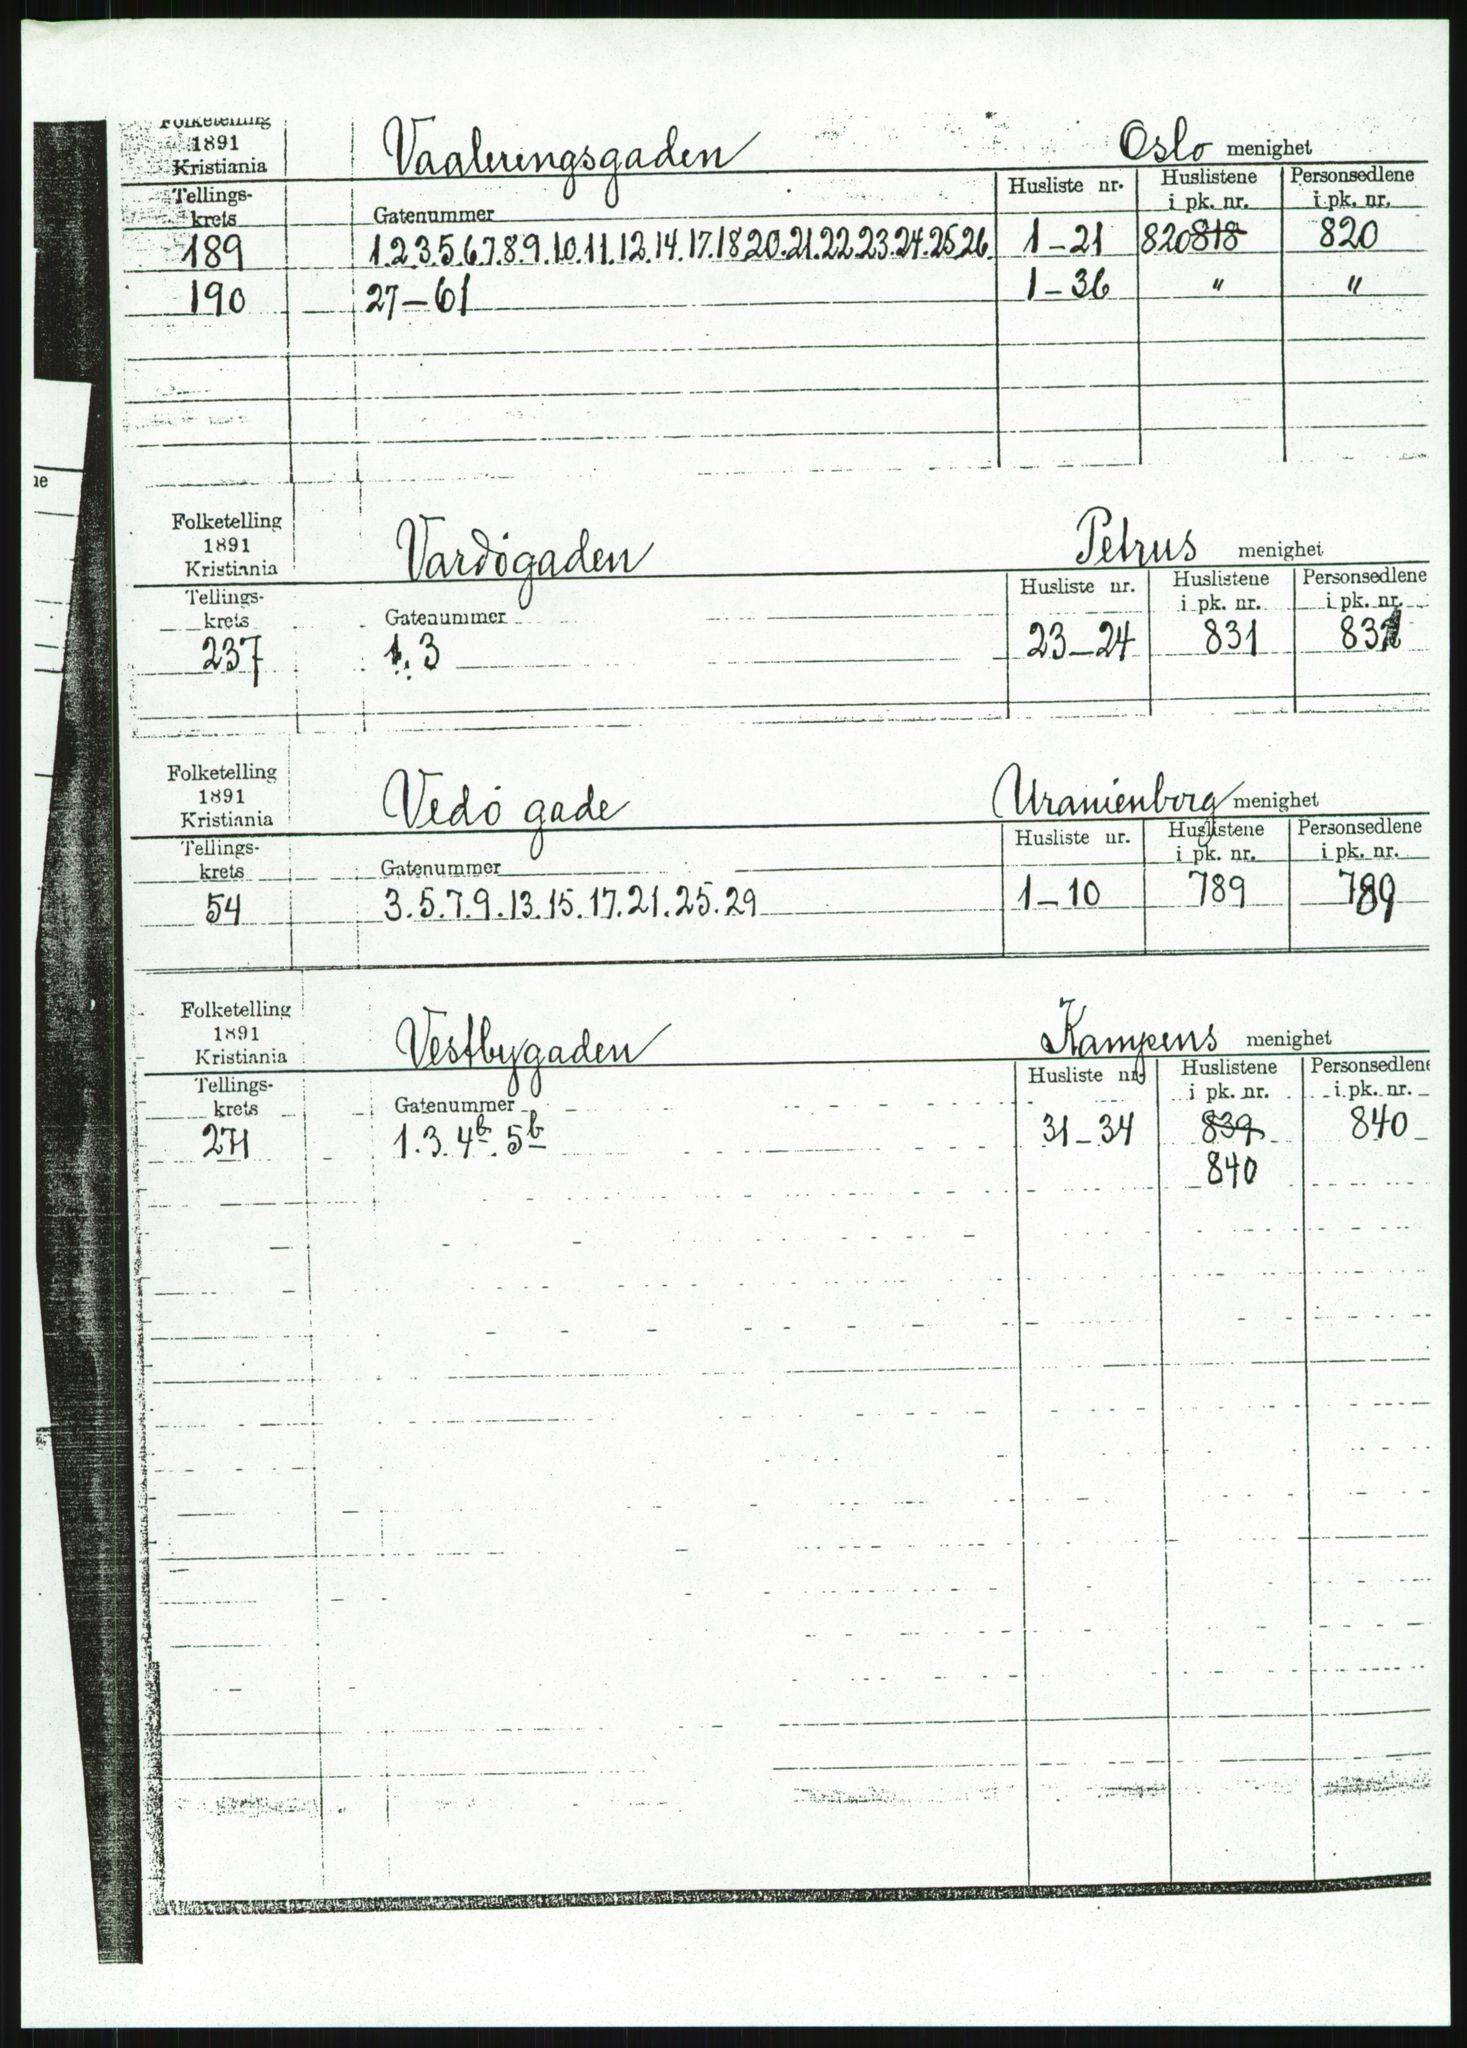 Folketelling
1891
Kristiania
Vaaleringsgaden
Oslo menighet
Tellings-
krets
Gatenummer
Husliste nr.
Huslistene
i pk. nr.
Personsedlene
i pk. nr.
189 1.2.3.5.6.7.8.9.10.11.12.14.17.18.20.21.22.23.24.25.26. 1-21 820 818 820
190 27-61 1-36 " "
ne
Folketelling
1891
Kristiania
Vardøgaden
Petrus menighet
Tellings-
krets
Gatenummer
Husliste nr.
Huslistene
i pk. nr.
Personsedlene
i pk. nr.
237 1. 3 23-24 831 831
Folketelling
1891
Kristiania
Vedø gade
Uranienborg menighet
Tellings-
krets
Gatenummer
Husliste nr.
Huslistene
i pk. nr.
Personsedlene
i pk. nr.
54 3.5.7.9.13.15.17.21.25.29 1-10 789 789
Folketelling
1891
Kristiania
Vestbygaden
Kampens menighet
Tellings-
krets
Gatenummer
Husliste nr.
Huslistene
i pk. nr.
Personsedlene
i pk. nr.
271 1.3.4b.5b 31-34 839 840
840